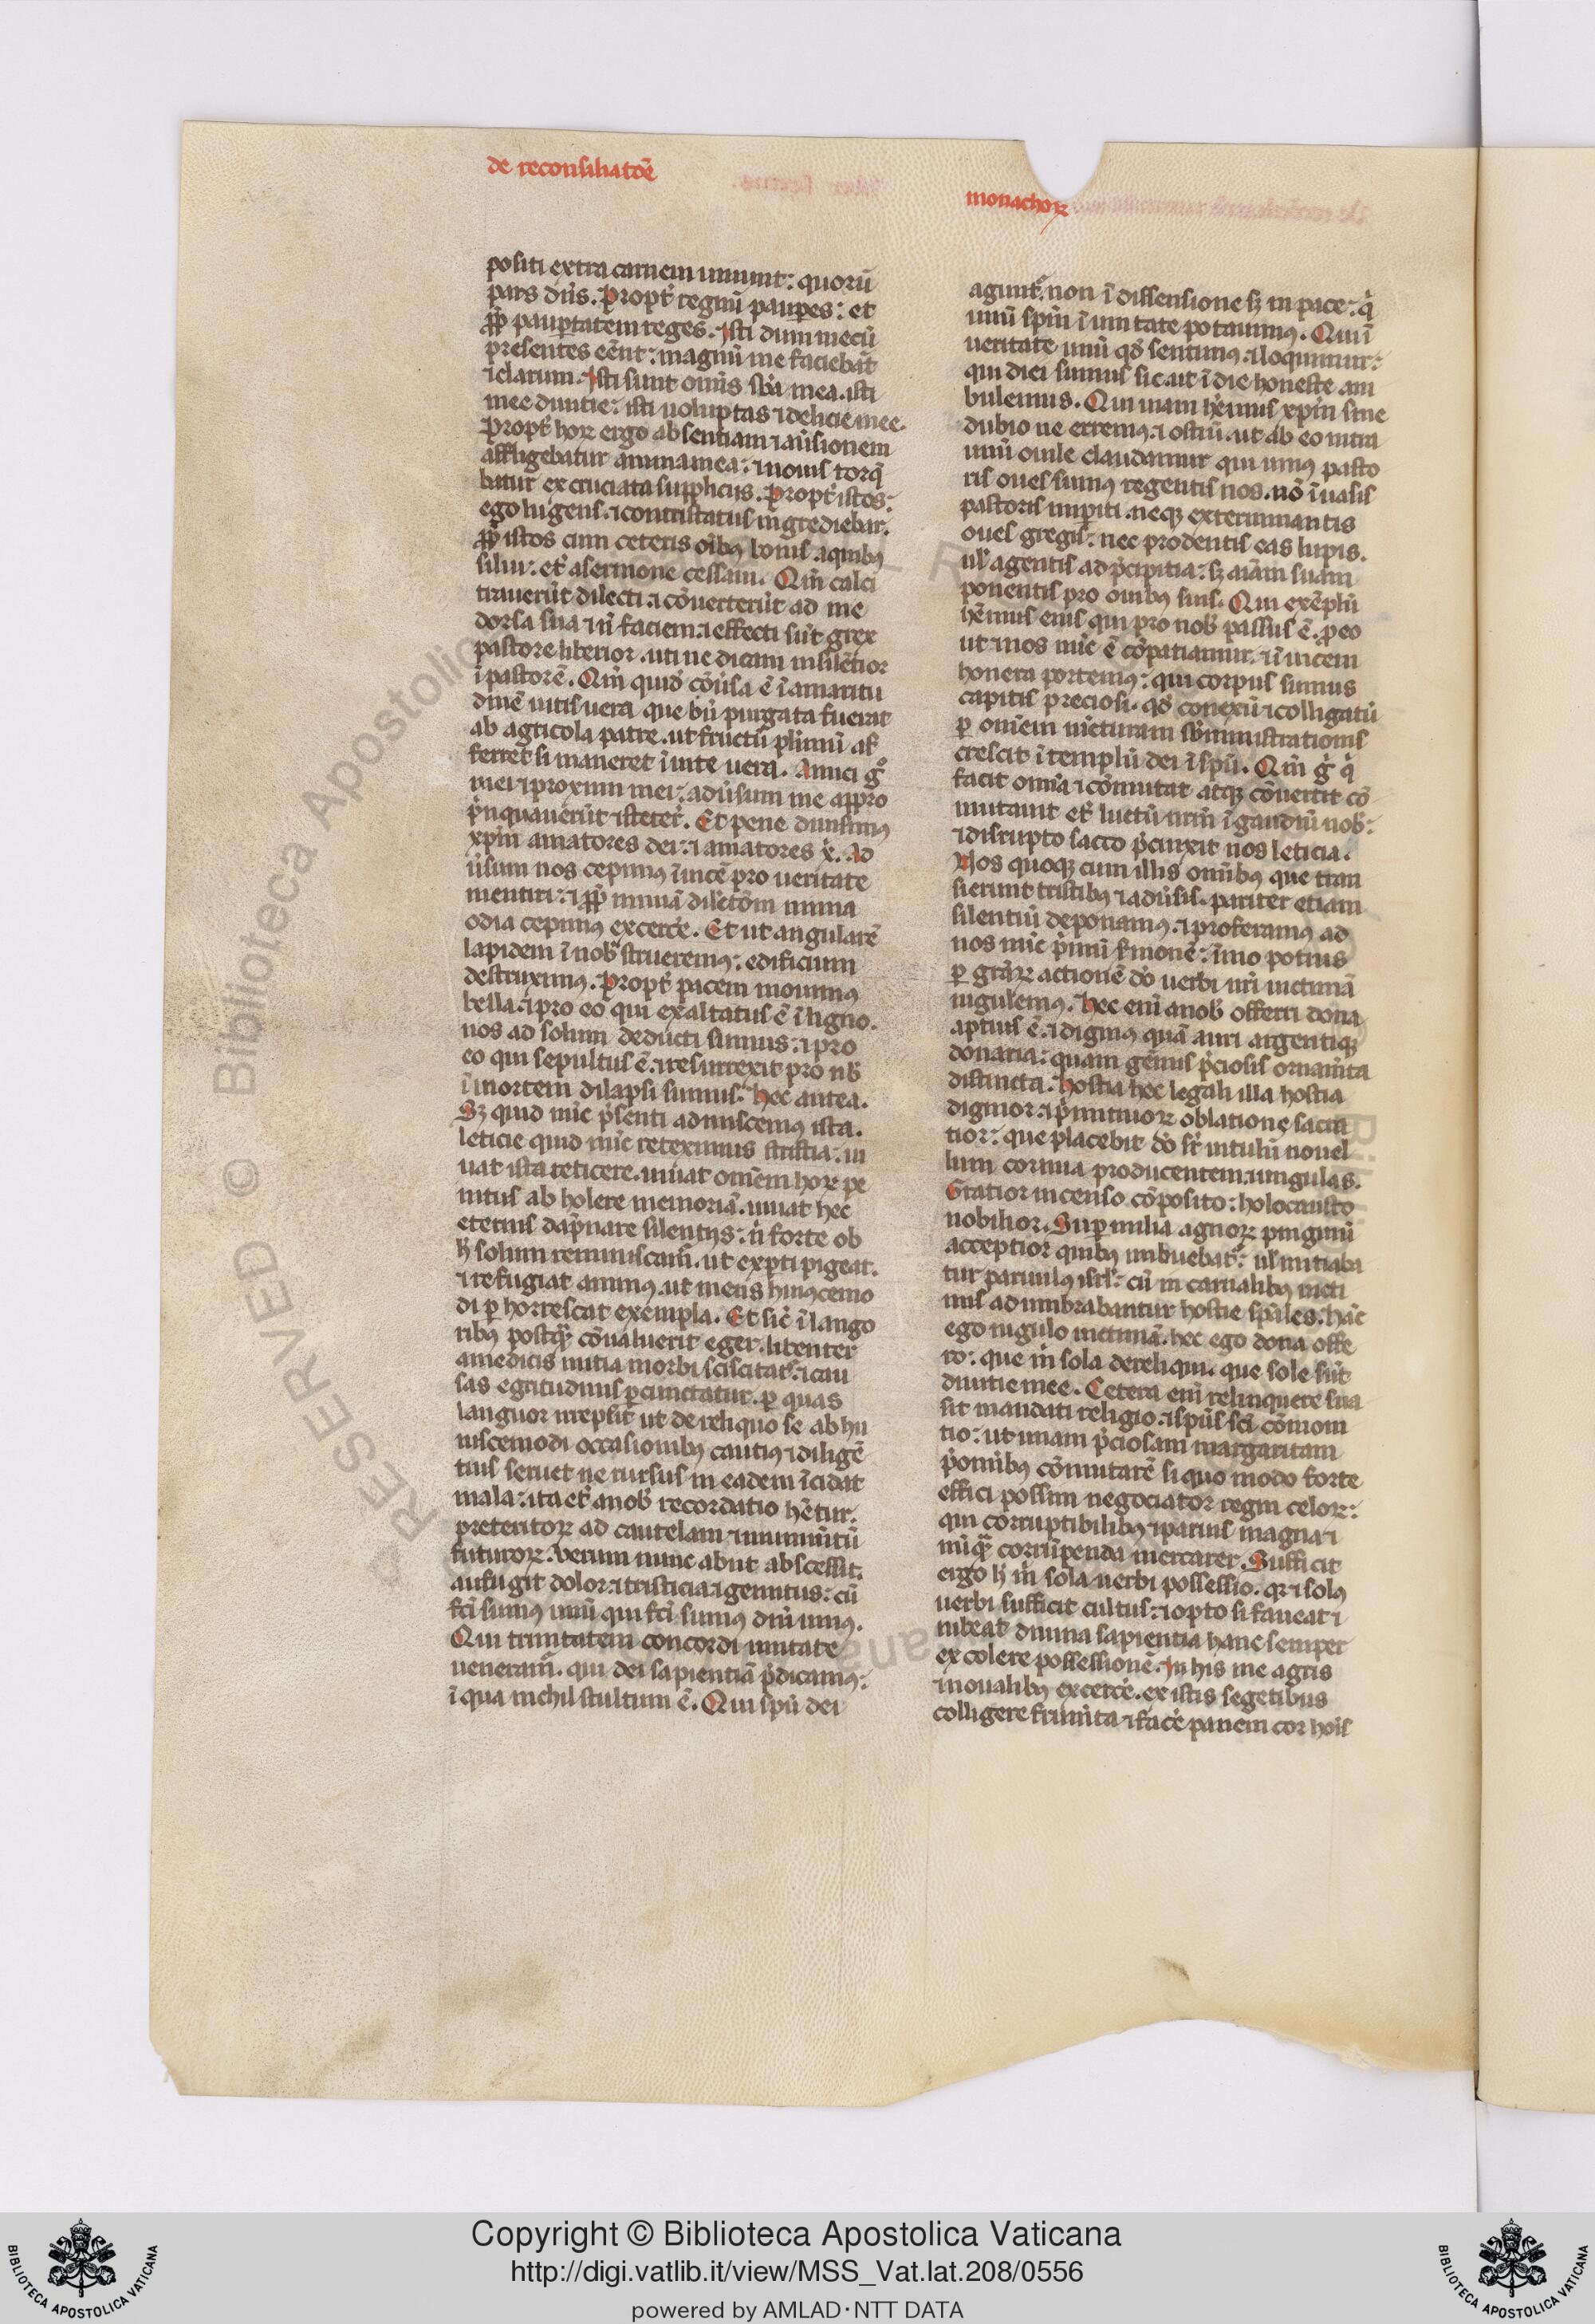 de reconsiliatõe
monachoꝝ
positi extra carnem uiuunt: quorũ
pars dñs. Propt̃ regnũ paupes: et
ꝓpt̃ paupertatem reges. Isti dum mecũ
presentes eẽnt: magnũ me faciebãt
⁊ clarum. Isti sunt omĩs sb̃a mea. isti
mee diuitie: isti uoluptas ⁊ delicie mee.
Propt̃ hoꝝ ergo absentiam ⁊ aũsionem
affligebatur anima mea: ⁊ nouis torq̃
batur excruciata suppliciis. Propt̃ istos:
ego lugens. ⁊ contristatus ingrediebar.
ꝓpt̃ istos cum ceteris oĩbꝰ bonis a quibꝰ
silui: et̃ a sermone cessaui. Qm̃ calci
trauerũt dilecti. ⁊ cõuerterũt ad me
dorsa sua ⁊ ñ faciem. ⁊ effecti sũt grex
pastore liberior. uti ne dicam insilẽtior
ĩ pastorẽ. Qm̃ quid̃ cõũsa ẽ ĩ amaritu
dinẽ uitis uera que bñ purgata fuerat
ab agricola patre. ut fructũ plr̃imũ af
ferret si maneret ĩ uite uera. Amici g̃
mei ⁊ proximi mei: adũsum me appro
p̃inquauerũt ⁊ stetert̃. Et pene diuisimꝰ
xpm̃ amatores dei: ⁊ amatores x̃. Ad
ũsum nos cepimꝰ ĩuicẽ pro ueritate
mentiri: ⁊ ꝓpt̃ mutuã dilctõm mutua
odia cepimꝰ excerc̃e. Et ut angularẽ
lapidem ĩ nob̃ strueremꝰ: edificium
destruximꝰ. Propt̃ pacem mouimꝰ
bella. ⁊ pro eo qui exaltatus ẽ ĩ ligno.
nos ad solum deducti sumus: ⁊ pro
eo qui sepultus ẽ. ⁊ resurrexit pro nb̃
ĩ mortem dilapsi sumus. Hec antea.
Sꝫ quid nũc p̃senti admiscemꝰ ista.
leticie quid nũc retexmus tristia: iu
uat ista reticere. iuuat omẽm hoꝝ pe
nitus abolere memoriã. iuuat hec
eternis dampnare silentiis: ñ forte ob
h̃ solum reminiscamr̃. ut expti pigeat.
⁊ refugiat animꝰ. ut mens hiuꝰcemo
di perhorrescat exempla. Et sic̃ ĩ lango
ribꝰ postq̃ cõualuerit eger. libenter
a medicis initia morbi sciscitat̃. ⁊ cau
sas egritudinis percunctatur. per quas
languor irrepsit ut de reliquo se ab hu
iuscemodi occasionibꝰ cautiꝰ ⁊ diligẽ
tius seruet ne rursus in eadem ĩcidat
mala: ita et̃ a nob̃ recordatio hẽtur.
preteritoꝝ ad cautelam ⁊ munimtũ
futuroꝝ. Verum nunc abiit abscessit.
aufugit dolor. ⁊ tristicia. ⁊ gemitus: cũ
fc̃i sumꝰ unũ qui fc̃i sumꝰ dñi uniꝰ.
Qui trinitatem concordi unitate
ueneramr̃. qui dei sapientiã p̃dicamꝰ:
ĩ qua nichil stultum ẽ. Qui spũ dei
agunt̃. non ĩ dissensione sꝫ in pace: q̃
unũ spm̃ ĩ unitate potauimꝰ. Qui ĩ
ueritate unũ qd̃ sentimꝰ. ⁊ loquimur:
qui diei sumus sic. ut ĩ die honeste am
bulemus. Qui uiam hẽmus xpm̃ sine
dubio ne erremꝰ. ⁊ ostiũ. ut ab eo intra
unũ ouile claudamur qui uniꝰ pasto
ris oues sumꝰ regentis nos. nõ ĩuasis
pastoris imperiti. neqꝫ exterminantis
oues gregis: nec prodentis eas lupis.
ul̃ agentis ad p̃cipitia: sꝫ aĩam suam
ponentis pro ouibꝰ suis. Qui exẽplũ
hẽmus eius qui pro nob̃ passus ẽ. p eo
ut ⁊ nos nũc ẽ cõpatiamur. ⁊ ĩuicem
honera portemꝰ: qui corpus sumus
capitis preciosi. qd̃ conexũ ⁊ colligatũ
per omẽm iũcturam sb̃ministrationis
crescit ĩ templũ dei ĩ spũ. Qm̃ g̃ q̃
facit omĩa ⁊ cõmutat atqꝫ cõuertit cõ
mutauit et̃ luctũ nr̃m ĩ gaudiũ nob̃:
⁊ disrupto sacco p̃cinxit nos leticia.
Nos quoqꝫ cum illis omĩbꝰ que tran
sierunt tristibꝰ ⁊ adũsis. pariter etiam
silentiũ deponamꝰ. ⁊ proferamꝰ ad
uos nũc p̃imũ sermonẽ: ĩmo potius
per gr̃aꝝ actionẽ dõ uerbi nr̃i uictimã
iugulemꝰ. Hec enĩ a nob̃ offerri dona
aptius ẽ. ⁊ digniꝰ quã auri argentiqꝫ
donaria: quam gẽmis p̃ciosis ornam̃ta
distincta. Hostia hec legali illa hostia
dignior. ⁊ p̃imitiuoꝝ oblatione sacra
tior: que placebit dõ sr̃ uitulũ nouel
lum cornua producentem ⁊ ungulas.
Gratior incenso cõposito: holocausto
nobilior. Super milia agnoꝝ pinguiũ
acceptior quibꝰ imbuebat̃: ul̃ initiaba
tur paruulꝰ isrl̃: cũ in carnalibꝰ uicti
mis adumbrabantur hostie spũles. Hãc
ego iugulo uictimã. hec ego dona offe
ro: que m̃ sola dereliqui. que sole sũt
diuitie mee. Cetera enĩ relinquere sua
sit mandati religio. ⁊ spũs sc̃i cõmoni
tio: ut unam p̃ciosam margaritam
p̃ omĩbꝰ cõmutarẽ si quo modo forte
effici possim negociator regni celoꝝ:
qui corruptibilibꝰ ⁊ paruis magna ⁊
nũq̃ corrũpenda mercarer. Sufficit
ergo h̃ m̃ sola uerbi possessio. qꝛ ⁊ solꝰ
uerbi sufficit cultus: ⁊ opto si faueat ⁊
iubeat diuina sapientia hanc semper
excolere possessionẽ. In his me agris
⁊ noualibꝰ excerc̃e. ex istis segetibus
colligere frum̃ta ⁊ fac̃e panem cor hoĩs
© Biblioteca Apostolica
RESERVED
Copyright © Biblioteca Apostolica Vaticana
http://digi.vatlib.it/view/MSS_Vat.lat.208/0556
powered by AMLAD·NTT DATA
BIBLIOTECA APOSTOLICA VATICANA
BIBLIOTECA APOSTOLICA VATICANA